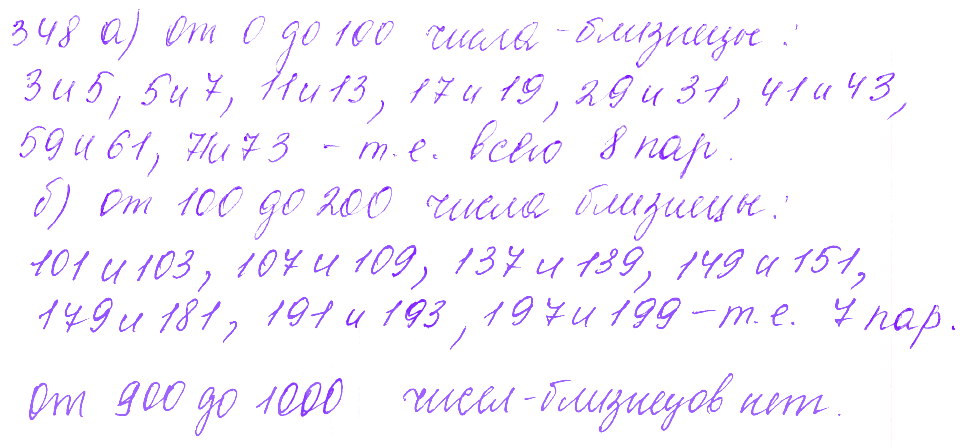 348 а) от 0 до 100 числа-близнецы:
3 и 5, 5 и 7, 11 и 13, 17 и 19, 29 и 31, 41 и 43,
59 и 61, 71 и 73 – т.е. всего 8 пар.
б) от 100 до 200 числа близнецы:
101 и 103, 107 и 109, 137 и 139, 149 и 151,
179 и 181, 191 и 193, 197 и 199 – т.е. 7 пар.
От 900 до 1000 чисел-близнецов нет.